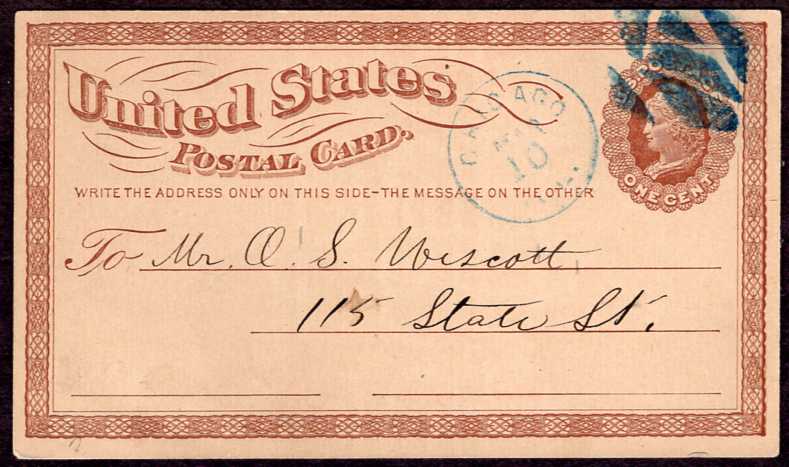 United States
POSTAL CARD.
WRITE THE ADDRESS ONLY ON THIS SIDE-THE MESSAGE ON THE OTHER
CHICAGO
MAR
10
ILL.
POSTAGE
ONE CENT
To Mr. O. S. Wescott
115 State St.